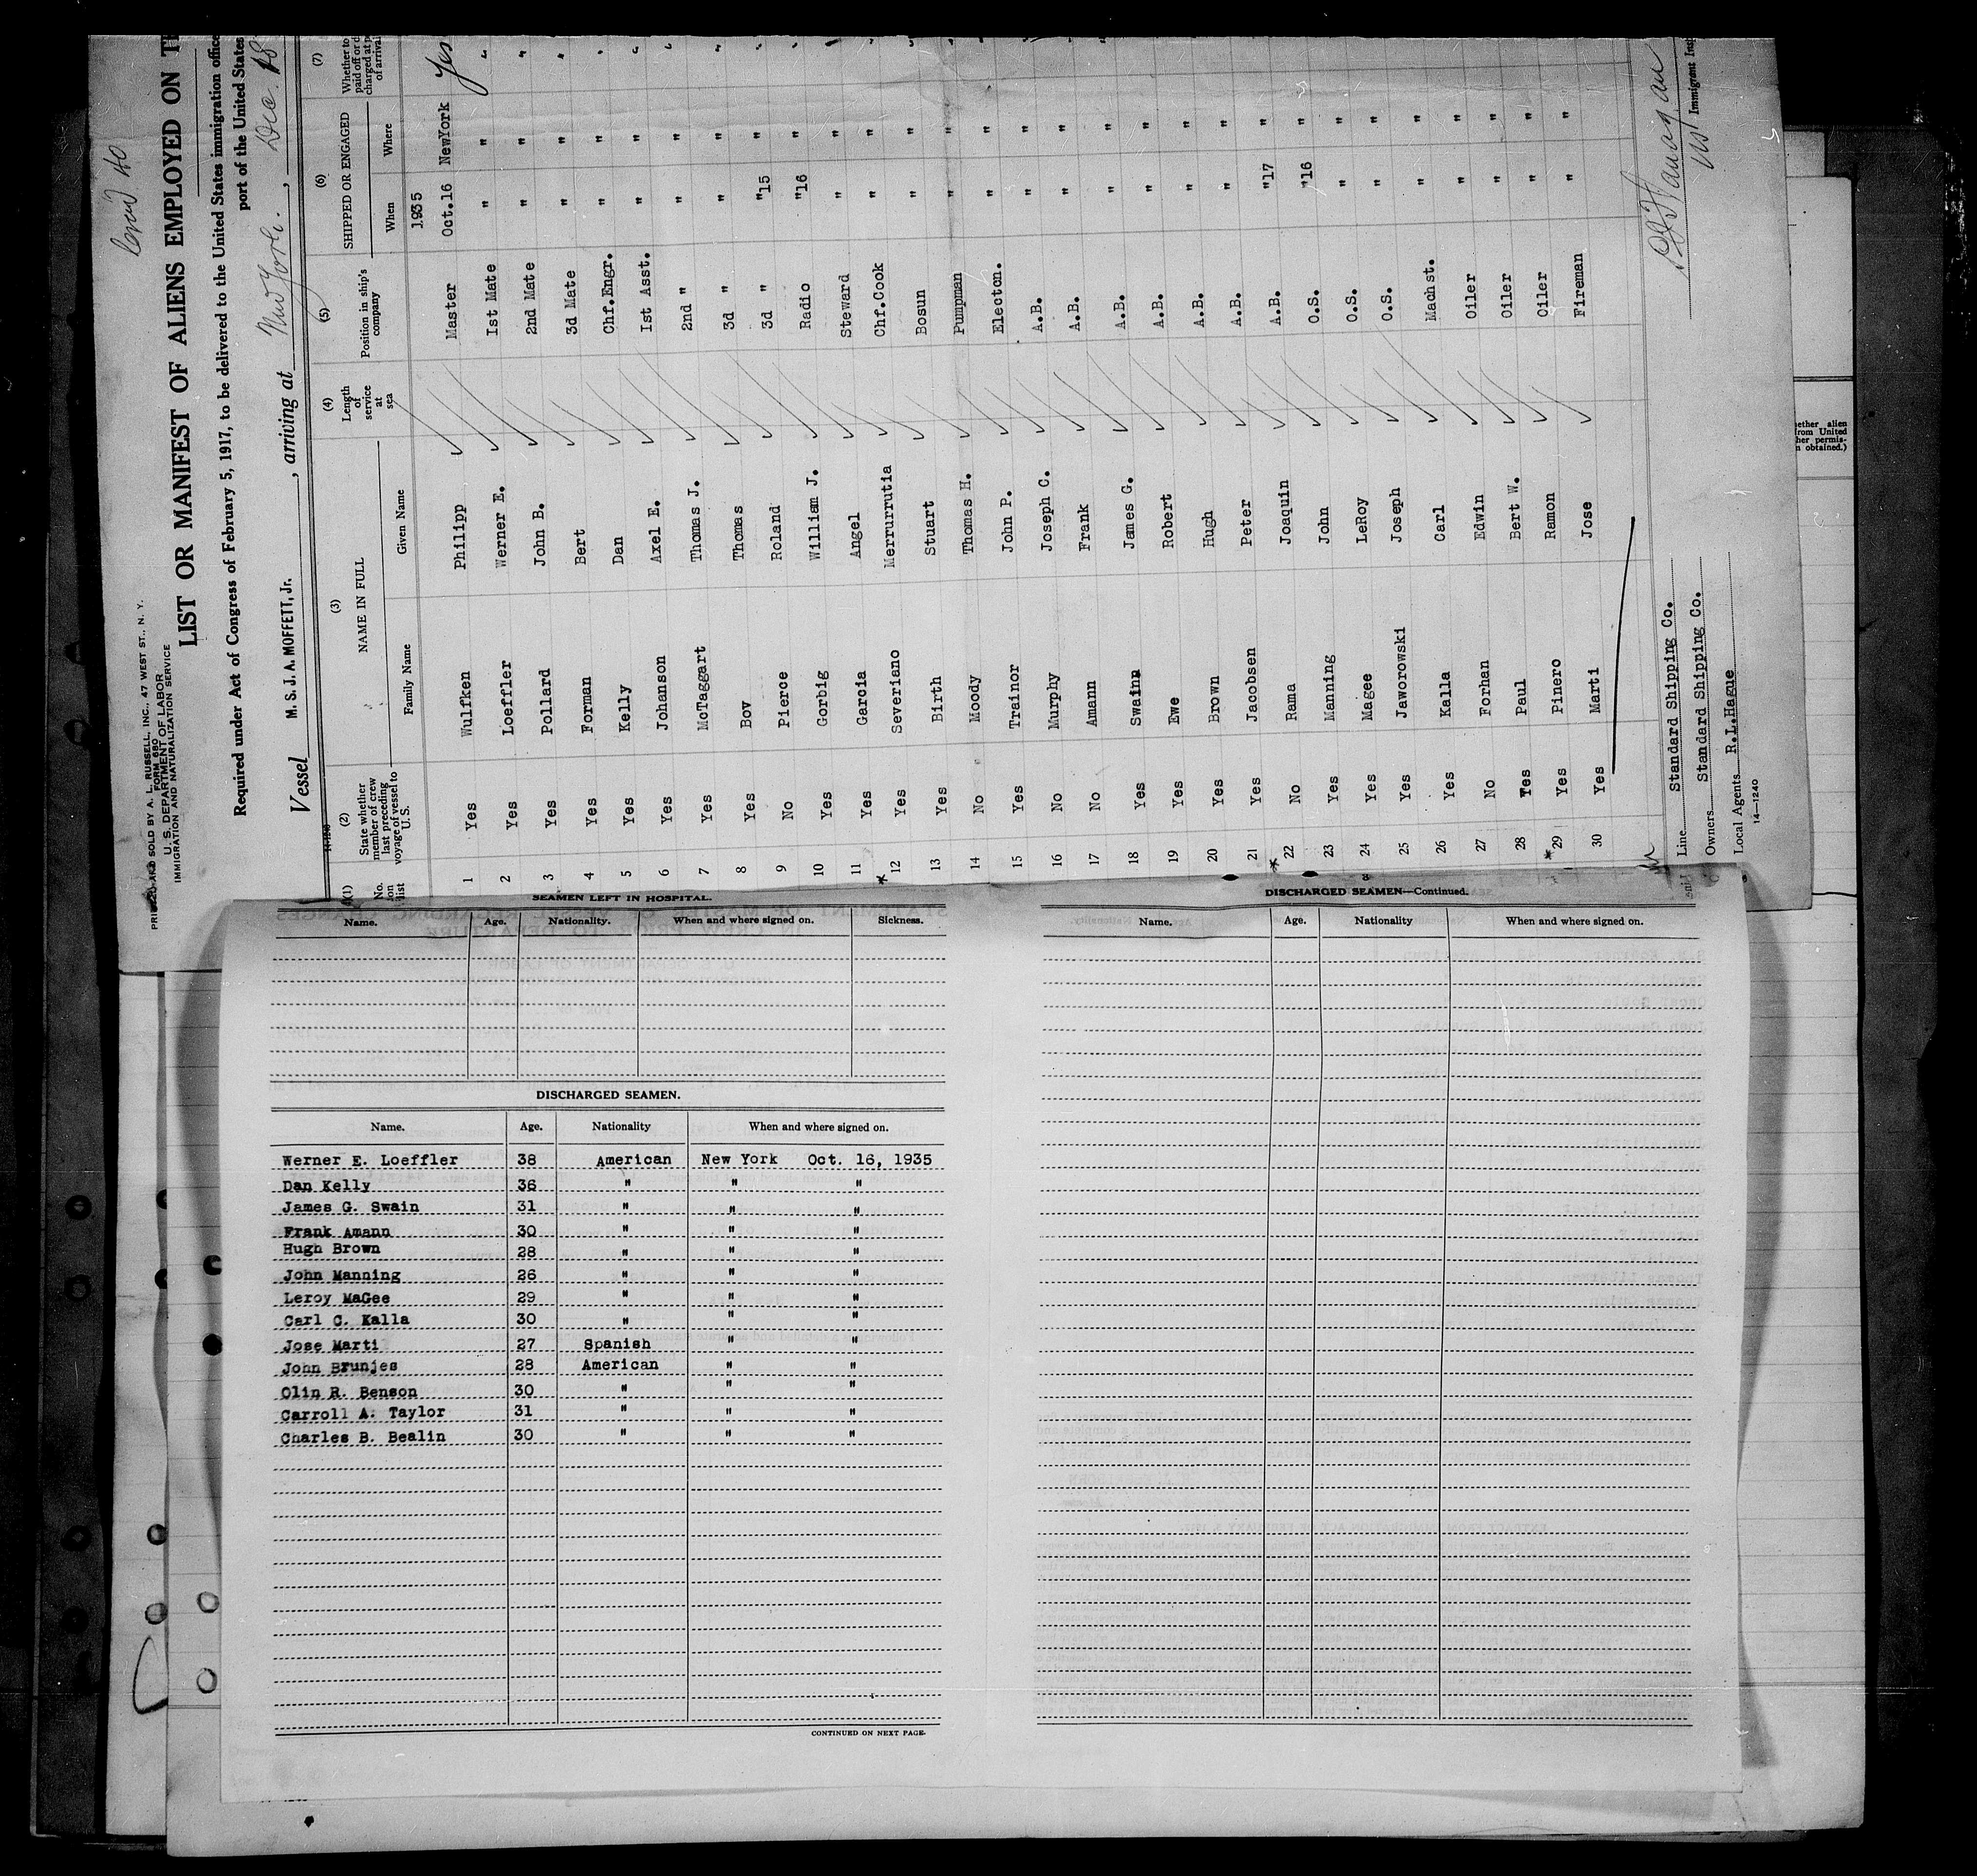 PRINTED AND SOLD BY A. L. RUSSELL, INC., 47 WEST ST., N. Y.
FORM 680
U. S. DEPARTMENT OF LABOR
IMMIGRATION AND NATURALIZATION SERVICE
LIST OR MANIFEST OF ALIENS EMPLOYED ON
Required under Act of Congress of February 5, 1917, to be delivered to the United States immigration
port of the United States
Vessel M. S. J. A. MOFFETT, Jr., arriving at New York, Dec. 18
(1) (2) (3) (4) (5) (6) (7)
No. on list
State whether member of crew last preceding voyage of vessel to U. S.
NAME IN FULL
Family Name Given Name
Length of service at sea
Position in ship's company
SHIPPED OR ENGAGED
When Where
Whether to paid off or charged at of arrival
1935
1 Yes Wulfken Philipp Master Oct.16 NewYork Yes
2 Yes Loeffler Werner E. 1st Mate " " "
3 Yes Pollard John B. 2nd Mate " " "
4 Yes Forman Bert 3d Mate " " "
5 Yes Kelly Dan Chf.Engr. " " "
6 Yes Johanson Axel E. 1st Asst. " " "
7 Yes McTaggart Thomas J. 2nd " " " "
8 Yes Bov Thomas 3d " " " "
9 No Pierce Roland 3d " "15 " "
10 Yes Gorbig William J. Radio "16 " "
11 Yes Garcia Angel Steward " " "
12 Yes Severiano Merrurrutia Chf.Cook " " "
13 Yes Birth Stuart Bosun " " "
14 No Moody Thomas H. Pumpman " " "
15 Yes Trainor John P. Electcn. " " "
16 No Murphy Joseph C. A.B. " " "
17 No Amann Frank A.B. " " "
18 Yes Swainn James G. A.B. " "
19 Yes Ewe Robert A.B. " "
20 Yes Brown Hugh A.B. " "
21 Yes Jacobsen Peter A.B. " "
22 No Rama Joaquin A.B. "17 "
23 Yes Manning John O.S. "16 "
24 Yes Magee LeRoy O.S. " "
25 Yes Jaworowski Joseph O.S. " "
26 Yes Kalla Carl Machst. " "
27 No Forhan Edwin Oiler " "
28 Yes Paul Bert W. Oiler " "
29 Yes Pinero Ramon Oiler " "
30 Yes Marti Jose Fireman " "
Line Standard Shipping Co.
Owners Standard Shipping Co.
Local Agents R.L.Hague
14—1240
Immigrant
ether alien
from United
her permis-
n obtained.)
SEAMEN LEFT IN HOSPITAL.
Name. Age. Nationality. When and where signed on. Sickness.
DISCHARGED SEAMEN.
Name. Age. Nationality When and where signed on.
Werner E. Loeffler 38 American New York Oct. 16, 1935
Dan Kelly 36 " " "
James G. Swain 31 " " "
Frank Amann 30 " " "
Hugh Brown 28 " " "
John Manning 26 " " "
Leroy MaGee 29 " " "
Carl C. Kalla 30 " " "
Jose Marti 27 Spanish " "
John Brunjes 28 American " "
Olin R. Benson 30 " " "
Carroll A. Taylor 31 " " "
Charles B. Bealin 30 " " "
CONTINUED ON NEXT PAGE.
DISCHARGED SEAMEN—Continued.
Name. Age. Nationality When and where signed on.